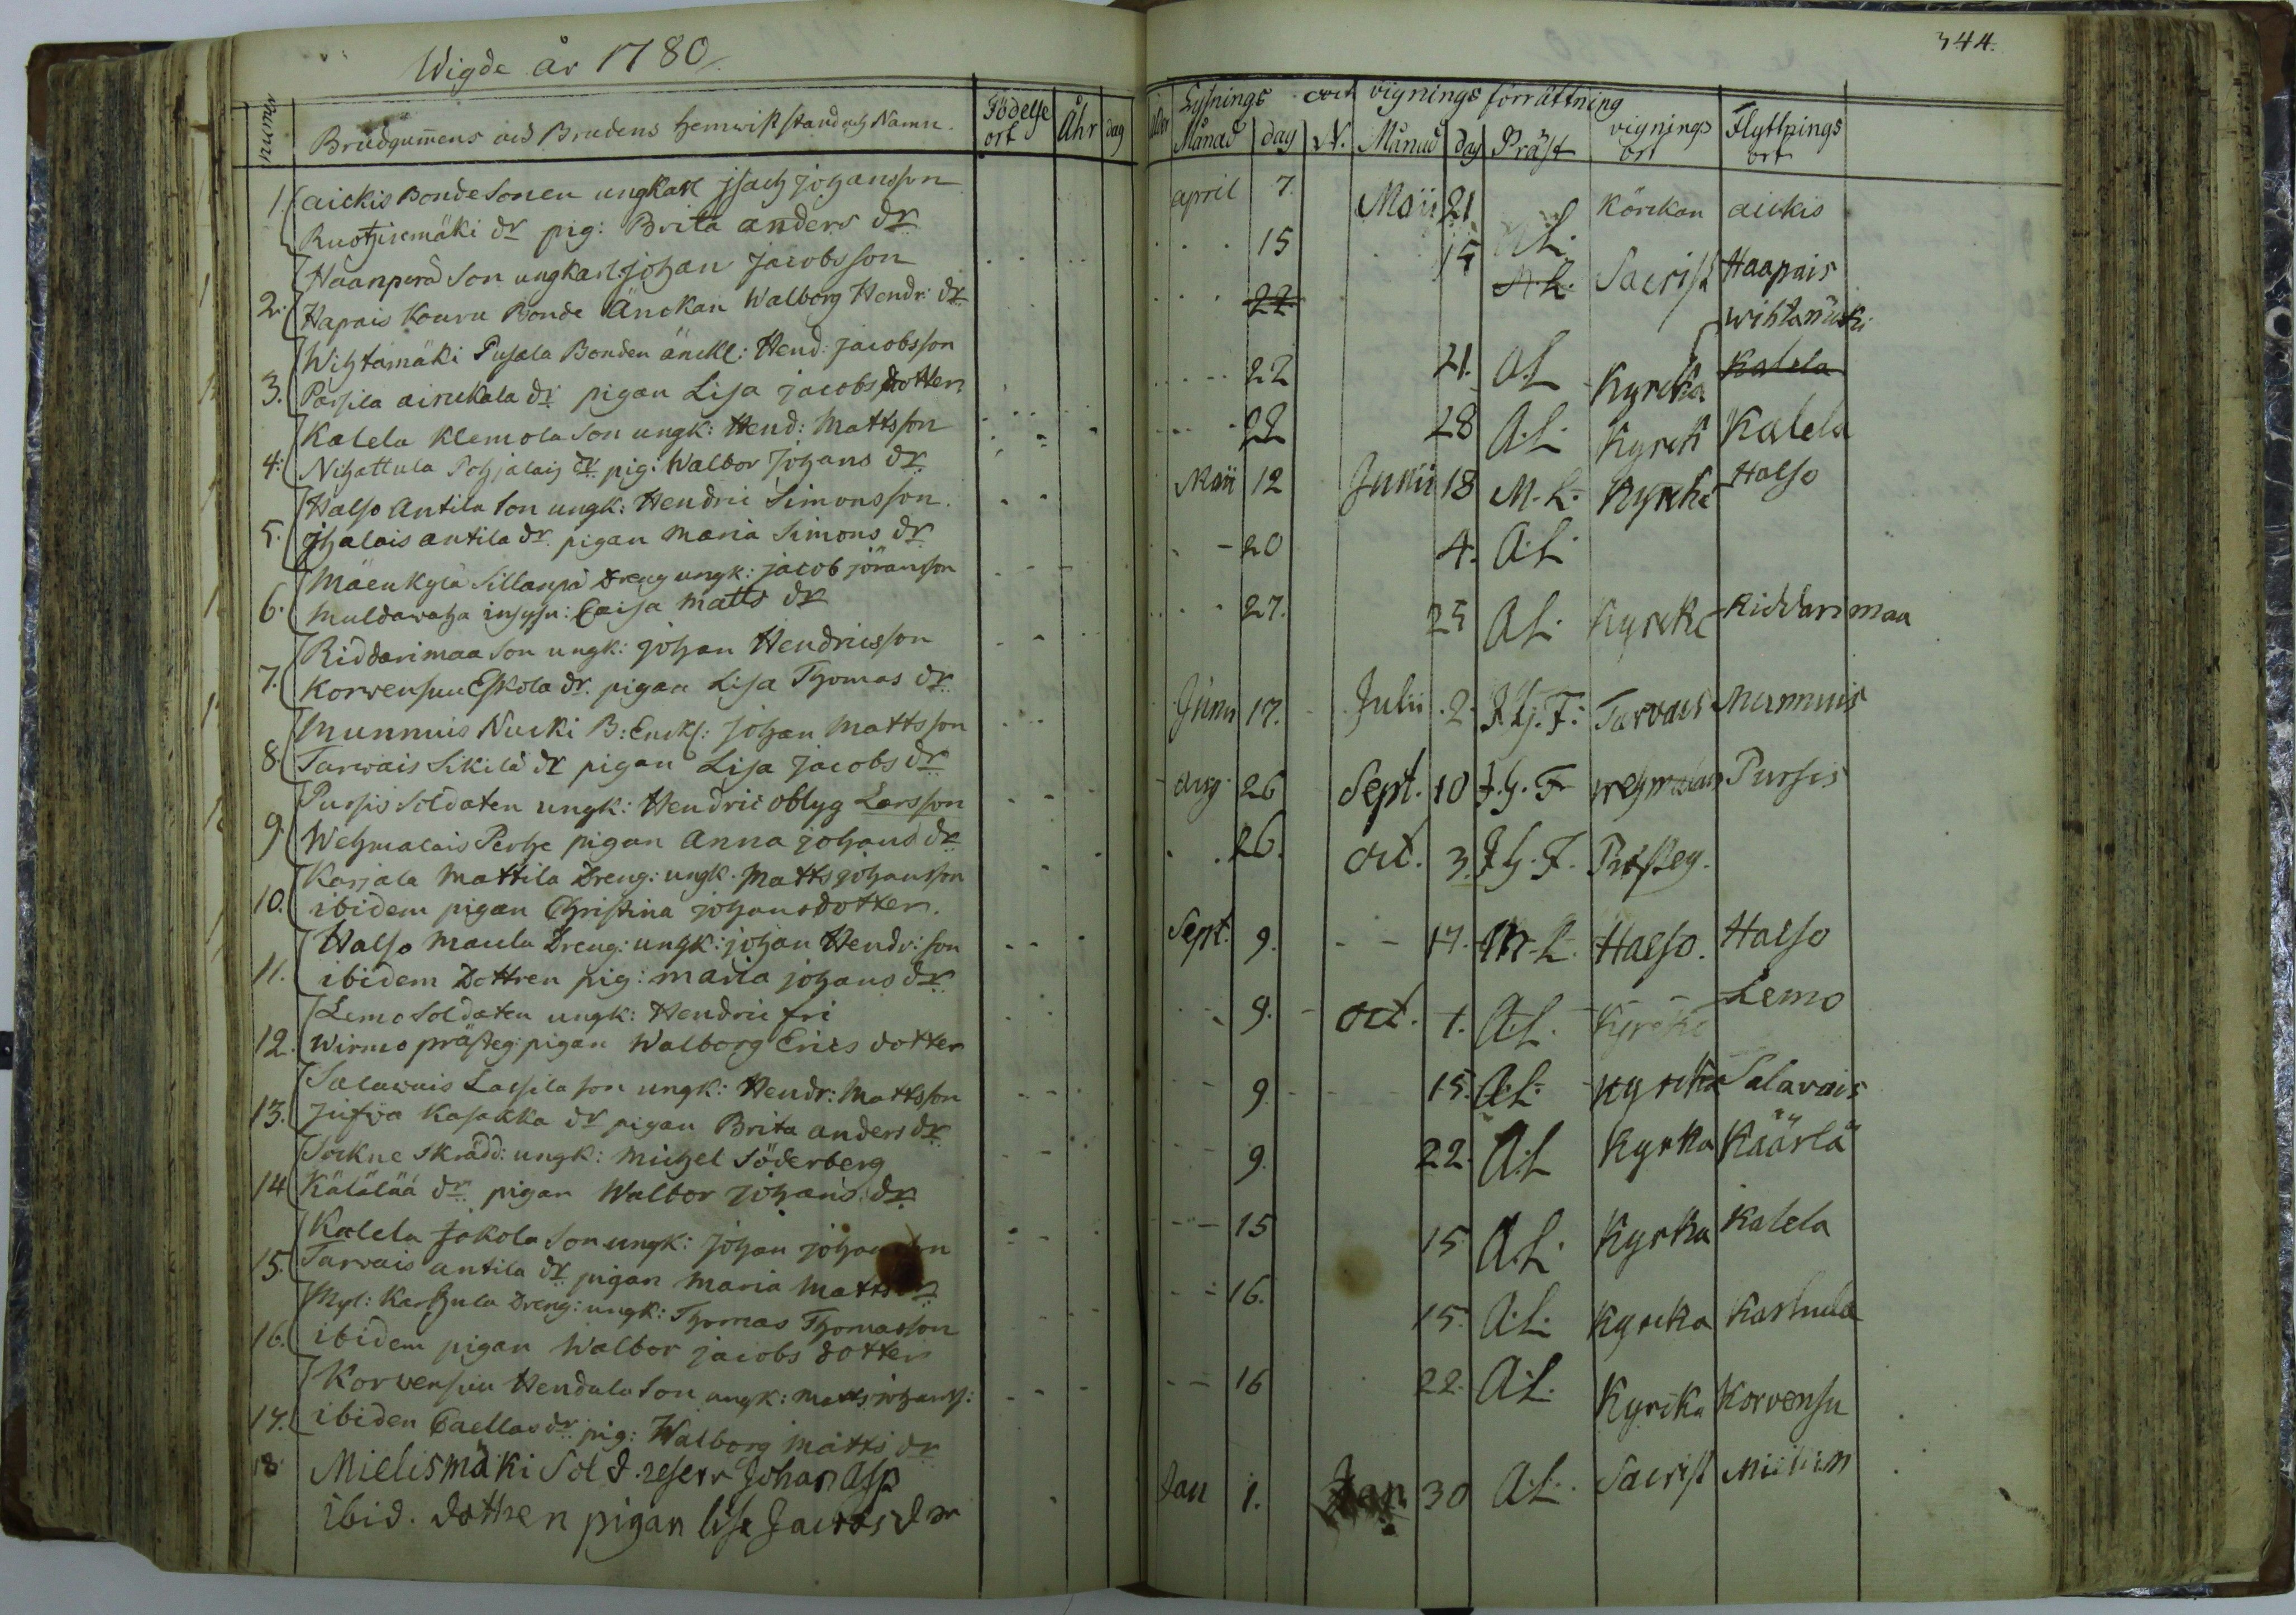 Wigde år 1780
numer
Brudgum̄ens och Brudens hemwist stand och Namn.
Födelse ort
Åhr
dag
1. aickis Bonde Sonen ungkarl jsach johansson
Ruotzisemäki dr pig: Brita anders dr
2. Haanperä Son ungkarl johan jacobsson
Hapais Kouru Bonde Änckan Walborg Hendr: dr
3. Wihtamäki Pusala Bonden änckl: Hend: jacobsson
Parsila airickala dr pigan Lisa jacobs dotter
4. Kalela Klemola Son ungk: Hend: Mattsson
Nihattula Pohjalais dr pig: Walbor Johans dr
5. Halso Antila Son ungk: Hendric Simonsson.
ihalais antila dr. pigan Maria Simons dr
6. Mäenkylä Sillanpä Dreng ungk: jacob jöransson
Muldawaha inhysn: Caisa Matts dr
7. Riddarimaa Son ungk: johan Hendricsson
Korwensuu Eskola dr. pigan Lisa Thomas dr
8. Munnuis Nucki B: Enckl: johan Mattsson
Tarwais Sikilä dr pigan Lisa jacobs dr
9. Pursis Soldaten ungk: Hendric oblyg Larsson
Wehmalais Perhe pigan Anna johans dr
10. Karjala Mattila Dreng: ungk: Matts johansson
ibidem pigan Christina johansdotter.
11. Halso Maula Dreng: ungk: johan Hendr: son
ibidem Dottren pig: maria johans dr
12. Lemo Soldaten ungk: Hendric fri
Wirmo prästeg: pigan Walborg Erics dotter
13. Salawais Lassila son ungk: Hendr: Mattsson
Kasakka dr pigan Brita anders dr
14. Sockne Skrädd: ungk: Michel Söderberg
dr pigan Walbor Johans dr
15. Kalela Jakola Son ungk: Johan
Tarwais antila dr pigan Maria Matts dr
16. Myl: Karhula Dreng: ungk: Thomas Thomasson
ibidem pigan Walbor jacobs dotter
17. Korvensuu Hendala Son ungk: Matts johanss:
ibidem dr: pig: Walborg Matts dr
18 Mielismäki Sold. reserv Johan Asp
ibid. dottren pigan lisa Jacobs dr
344.
Lysnings och vignings förrättning
Månad dag N. Månad dag Präst vignings ort Flyttnings ort
april 7. Maij 21 A.L. Körckan aickis
15 15 A.L. Sacrist Haapais
22
22 21. A.L Kyrcka Wihtamäki Kalela
22 28 A.L. Kyrck Kalela
Maii 12 Junii 18 M.L. Kyrcka Halso
20 4. A.L.
27. 25 A.L. Kyrcka Riddarimaa
Junii 17. Julii 2. J.G.F. Tarvais Munnuis
aug. 26 Sept. 10 J.G.F wehmalais Pursis
26. Oct. 3. J.G.F. Prästeg.
Sept. 9. 17. M.L. Halso. Halso
9. Oct. 1. A.L. Kyrcka Lemo
9. 15. A.L. Kyrcka Salavais
9. 22. A.L Kyrka Käärlä
15 15 A.L. Kyrka Kalela
16. 15. A.L. Kyrcka Karhula
16 22. A.L. Kyrcka Korvensu
Jan 1. Jan 30 A.L. Sacrist